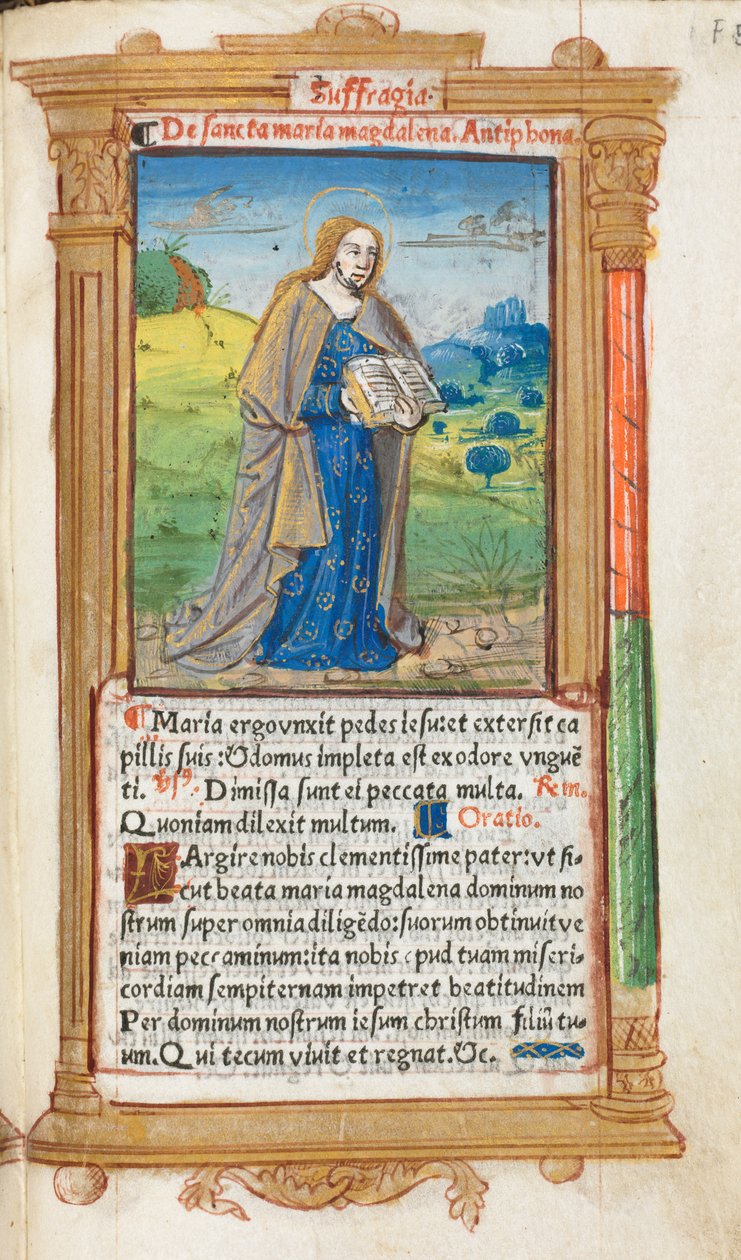 Suffragia.
¶ De sancta maria magdalena. Antiphona.
¶ Maria ergo vnxit pedes iesu: et extersit ca
pillis suis: & domus impleta est ex odore vnguē
ti. Dimissa sunt ei peccata multa.
Quoniam dilexit multum. ¶ Oratio.
LArgire nobis clementissime pater: vt si-
cut beata maria magdalena dominum no
strum super omnia diligēdo: suorum obtinuit ve
niam peccaminum: ita nobis apud tuam miseri-
cordiam sempiternam impetret beatitudinem
Per dominum nostrum iesum christum filiū tu-
um. Qui tecum viuit et regnat. &c.